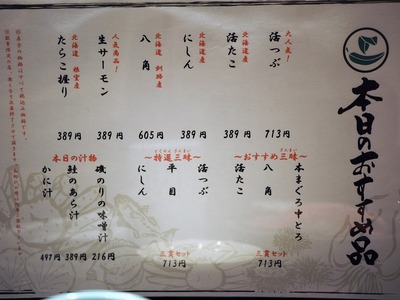 本日のおすすめ品
大人気！
活つぶ
713円
北海道産
活たこ
389円
北海道産
にしん
389円
北海道 釧路産
八角
605円
人気商品！
生サーモン
389円
北海道 根室産
たらこ握り
389円
～おすすめ三昧～
本まぐろ中とろ
八角
活たこ
三貫セット
713円
～特選三昧～
活つぶ
平目
にしん
三貫セット
713円
本日の汁物
磯のりの味噌汁
216円
鮭のあら汁
389円
かに汁
497円